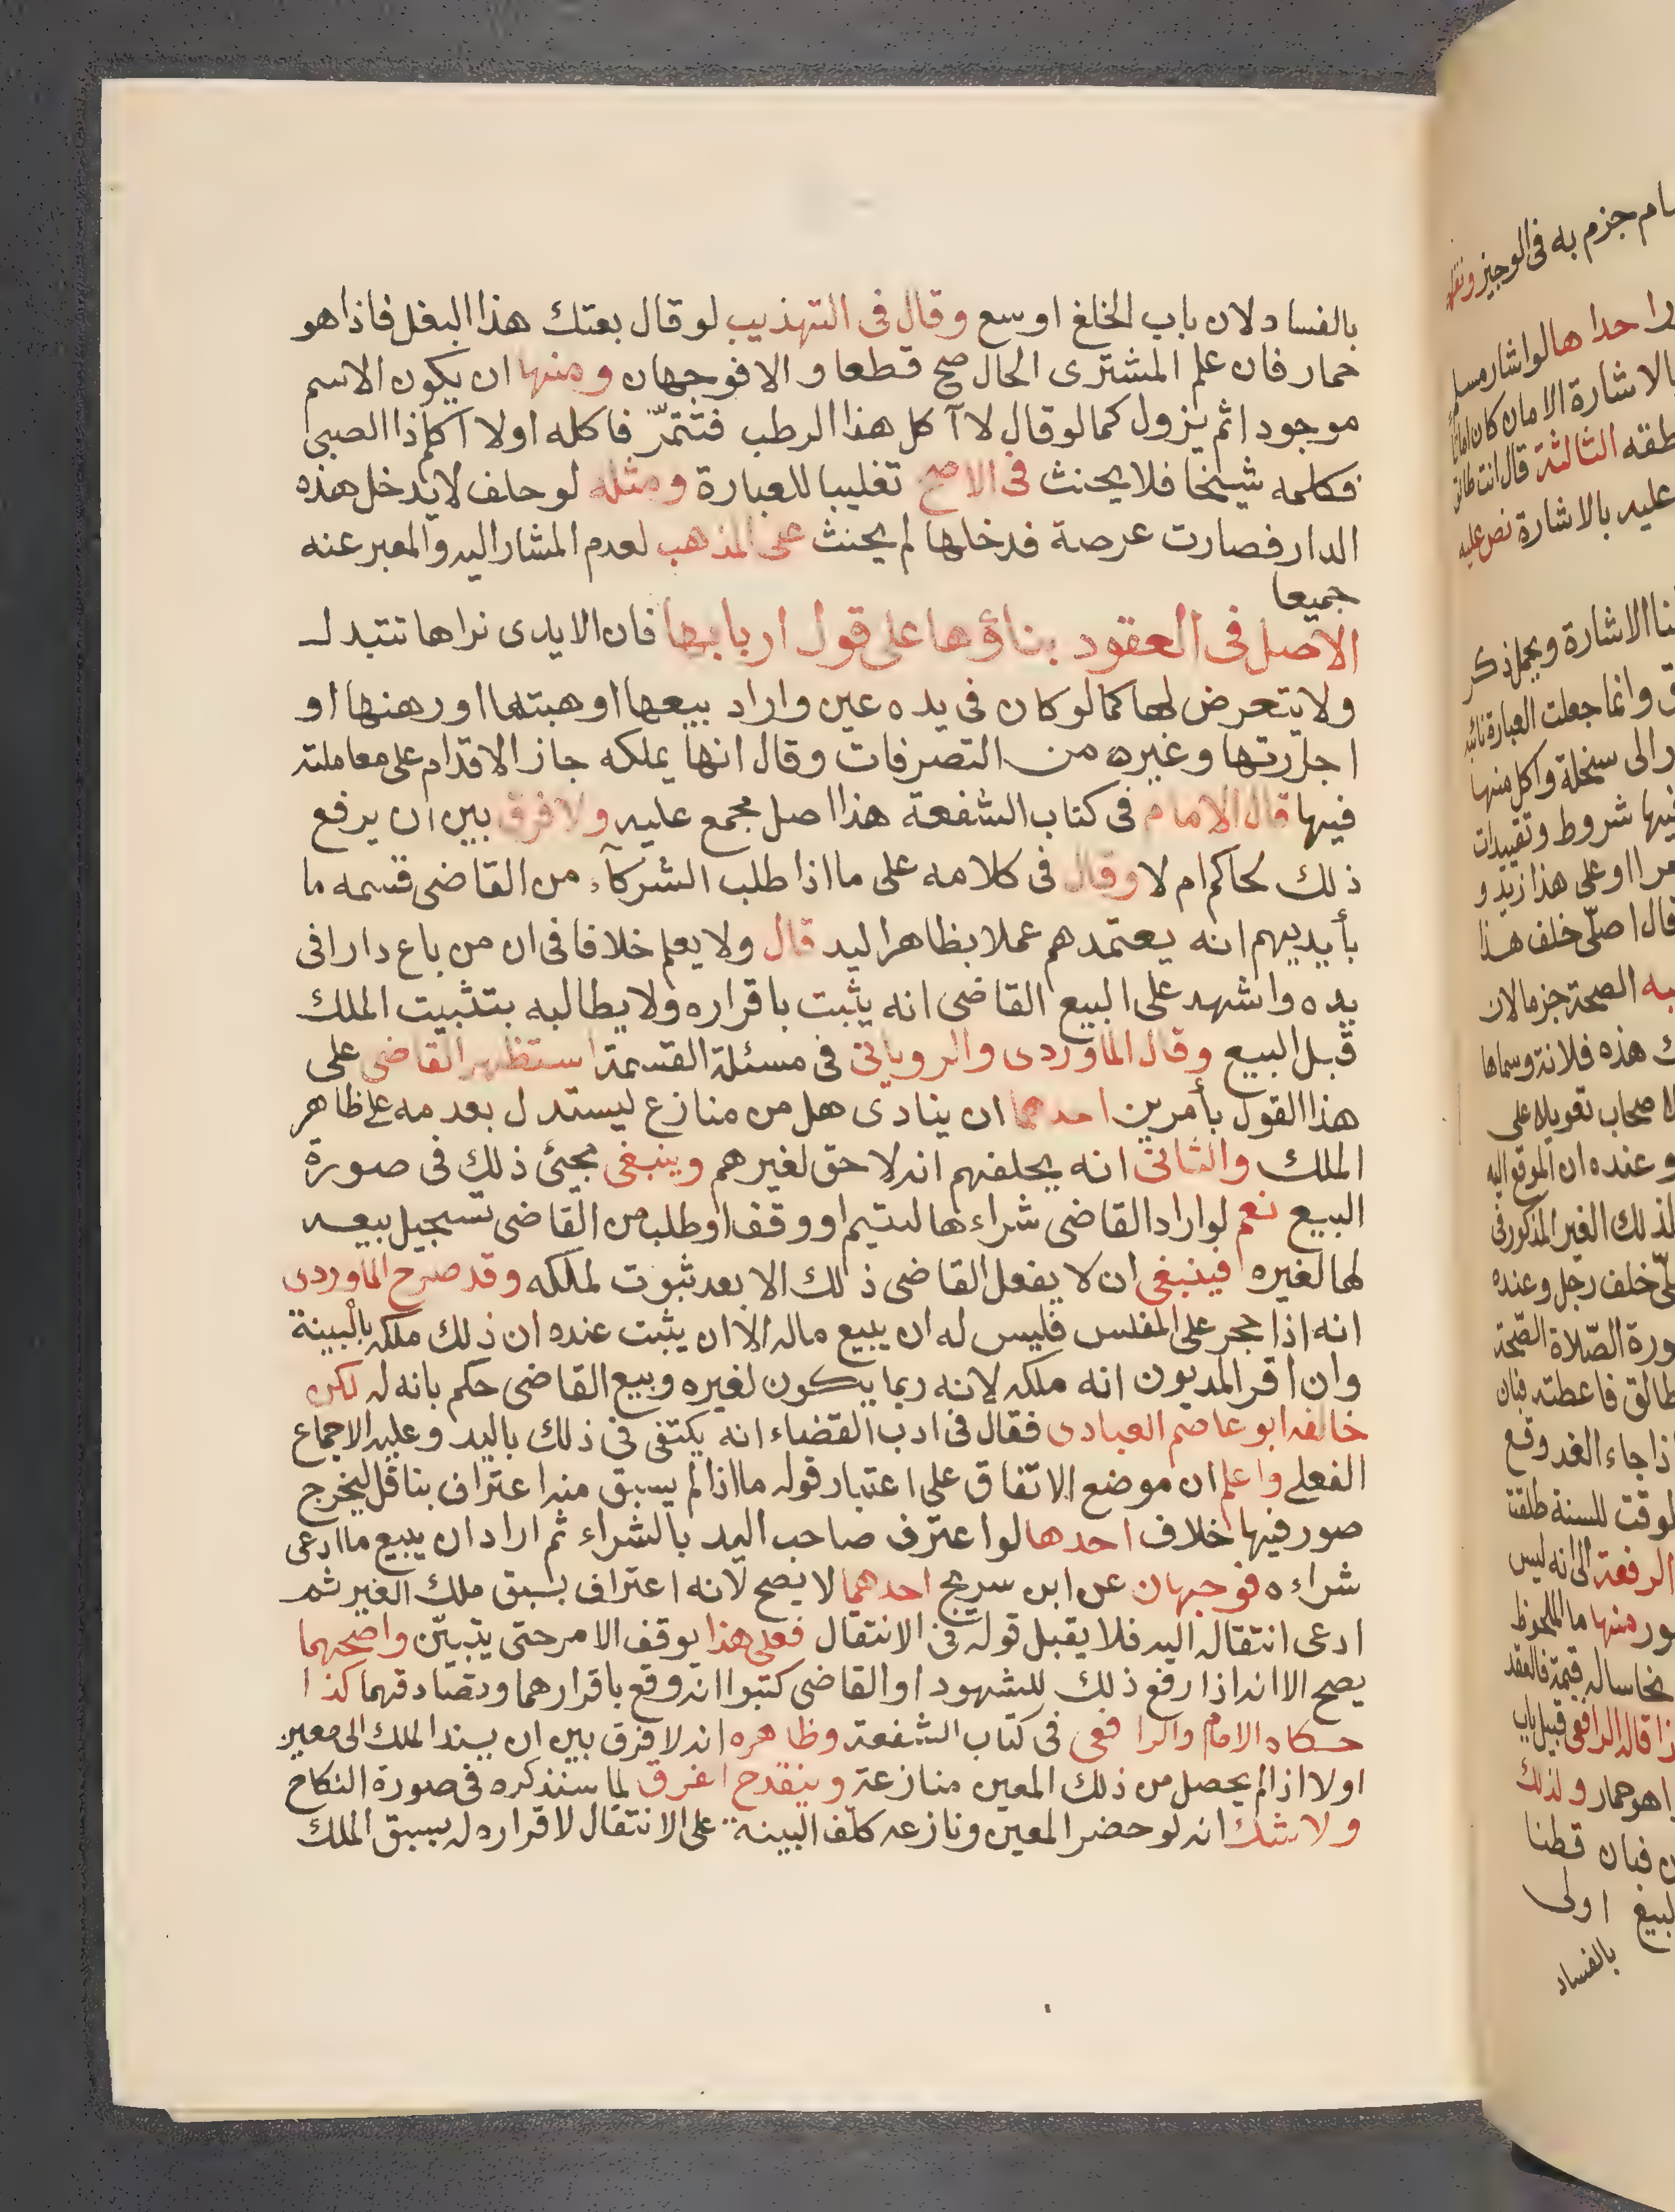 بالفساد لان باب الخلع اوسع وقال فى التهذيب لو قال بعتك هذا البغل فاذا هو
حمار فان علم المشترى الحال صح قطعا والا فوجهان ومنها ان يكون الاسم
موجودا ثم يزول كما لو قال لا آكل هذا الرطب فتتمّر فاكله اولا اكلم ذا الصبى
فكلمه شيخا فلا يحنث فى الاصح تغليبا للعبارة ومثله لو حلف لا يدخل هذه
الدار فصارت عرصة فدخلها لم يحنث على المذهب لعدم المشار اليه والمعبر عنه
جميعا
الاصل فى العقود بناؤها على قول اربابها فان الايدى نراها تتبدل
ولا يتعرض لها كما لو كان فى يده عين واراد بيعها او هبتها او رهنها او
اجارتها وغيره من التصرفات وقال انها يملكه جاز الاقدام على معاملته
فيها قال الامام فى كتاب الشفعة هذا اصل مجمع عليه ولا فرق بين ان يرفع
ذلك لحاكم ام لا وقال فى كلامه على ما اذا طلب الشركآء من القاضى قسمه ما
بأيديهم انه يعتمدهم عملا بظاهر اليد قال ولا يعلم خلافا فى ان من باع دارا فى
يده واشهد على البيع القاضى انه يثبت باقراره ولا يطالبه بتثبيت الملك
قبل البيع وقال الماوردى والرويانى فى مسئلة القسمة استظهر القاضى على
هذا القول بأمرين احدهما ان ينادى هل من منازع ليستدل بعدمه على ظاهر
الملك والثانى انه يحلفهم انه لا حق لغيرهم وينبغى مجئ ذلك فى صورة
البيع نعم لو اراد القاضى شراءها ليتيم او وقف او طلب من القاضى تسجيل بيعه
لها لغيره فينبغى ان لا يفعل القاضى ذلك الا بعد ثبوت لملكه وقد صرح الماوردى
انه اذا حجر على المفلس فليس له ان يبيع ماله الا ان يثبت عنده ان ذلك ملكه بالبينة
وان اقر المديون انه ملكه لانه ربما يكون لغيره وبيع القاضى حكم بانه له لكن
خالفه ابو عاصم العبادى فقال فى ادب القضاء انه يكتفى فى ذلك باليد وعليه الاجماع
الفعلى واعلم ان موضع الاتفاق على اعتبار قوله ما اذا لم يسبق منه اعتراف بناقل ليخرج
صور فيها خلاف احدها لو اعترف صاحب اليد بالشراء ثم اراد ان يبيع ما ادعى
شراءه فوجهان عن ابن سريج احدهما لا يصح لانه اعتراف بسبق ملك الغير ثم
ادعى انتقاله اليه فلا يقبل قوله فى الانتقال فعلى هذا يوقف الامر حتى يتبيّن واصحهما
يصح الا انه اذا رفع ذلك للشهود او القاضى كتبوا انه وقع باقرارهما وتصادقهما كذا
حكاه الامام والرافعى فى كتاب الشفعة وظاهره انه لا فرق بين ان يسند الملك الى معين
اولا اذا لم يحصل من ذلك المعين منازعة وينقدح الفرق لما سنذكره فى صورة النكاح
ولا شك انه لو حضر المعين ونازعه كلّف البينة على الانتقال لاقراره له بسبق الملك